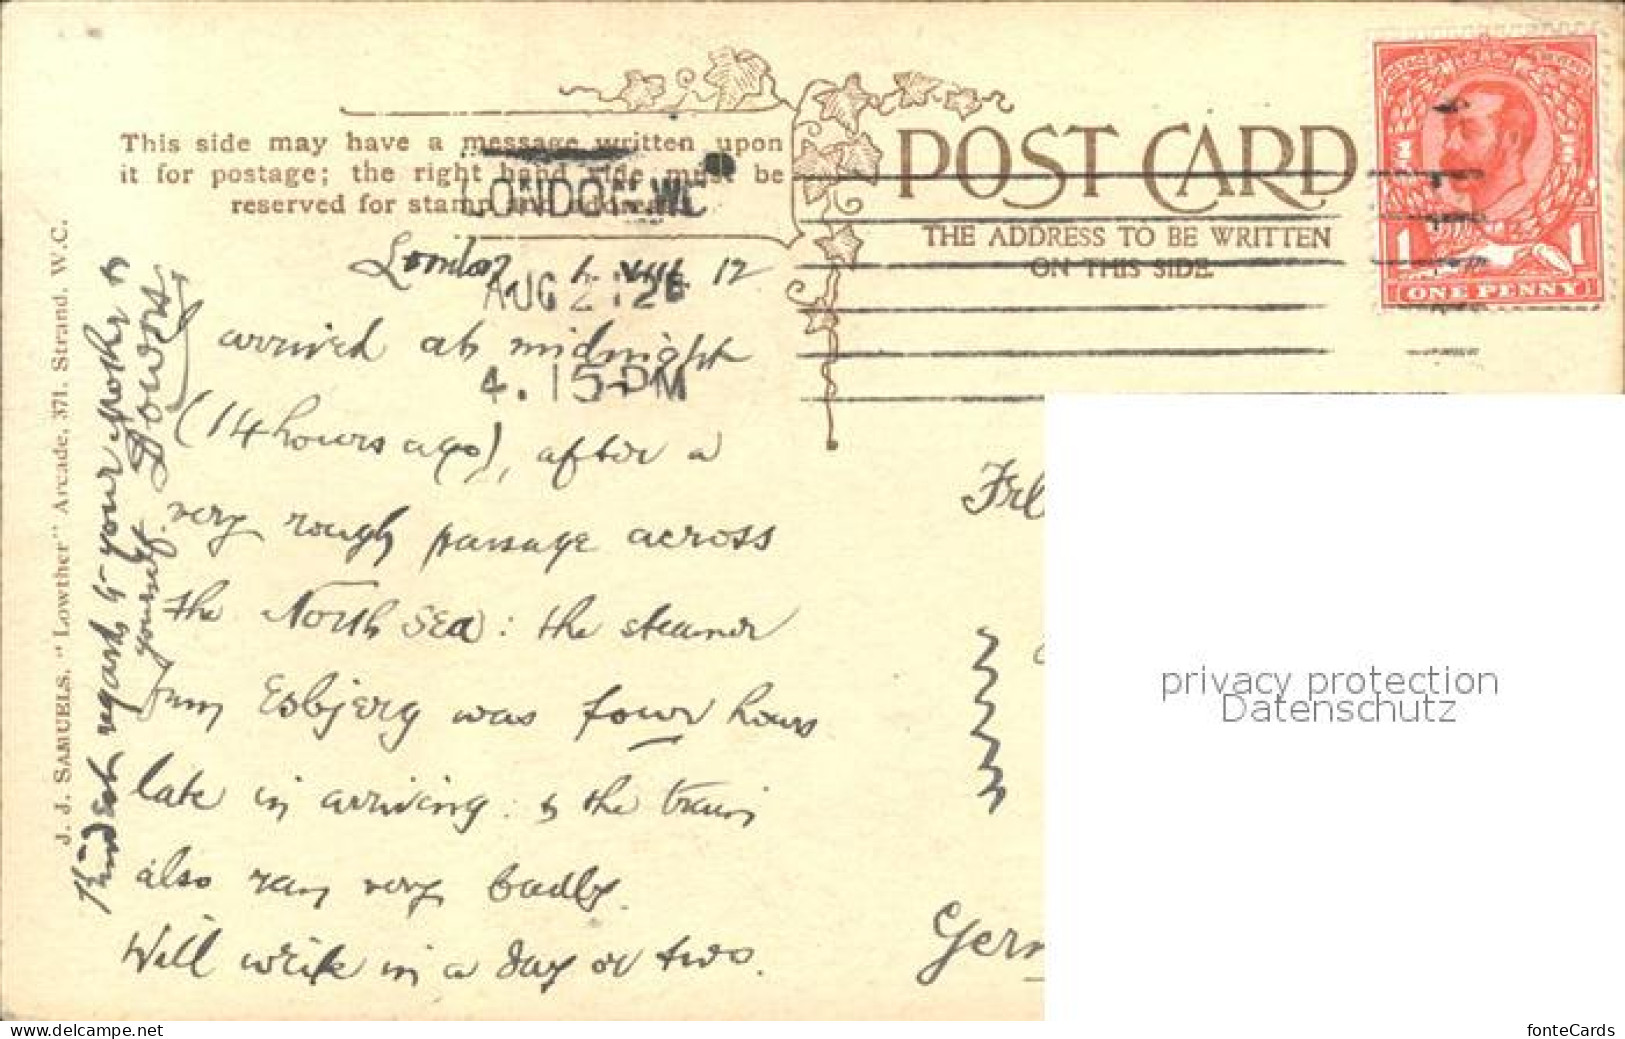 This side may have a message written upon
it for postage; the right hand side must be
reserved for stamp and address.
POST CARD
THE ADDRESS TO BE WRITTEN
ON THIS SIDE.
POSTAGE REVENUE
1 1
ONE PENNY
LONDON.W.C
AUG 2 12
4.15 PM
London, 1. VIII. 12
arrived at midnight
(14 hours ago), after a
very rough passage across
the North Sea: the steamer
from Esbjerg was four hours
late in arriving: & the train
also ran very badly.
Will write in a day or two.
Kindest regards to your mother &
yourself.
J. J. SAMUELS, "Lowther" Arcade, 371, Strand, W.C.
Frl
Germ
privacy protection
Datenschutz
www.delcampe.net
fonteCards